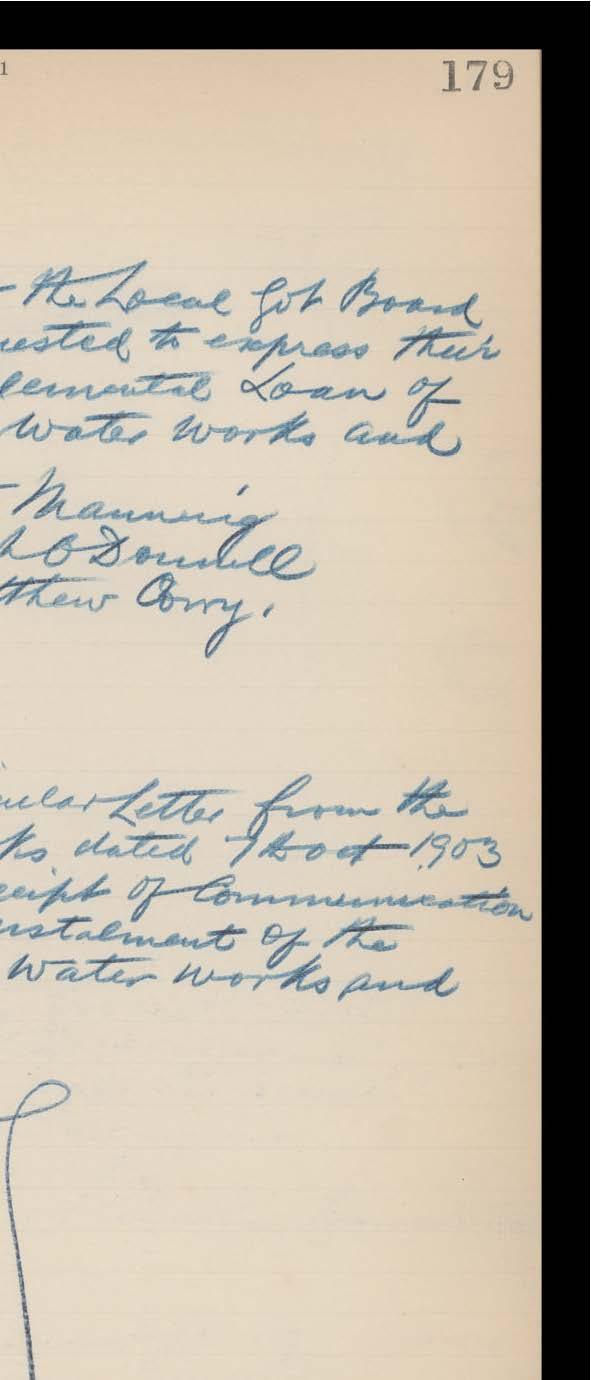 1
179
the Local Govt Board
uested to express their
lemental Loan of
Water Works and
Manning
h O'Donnell
thew Corry.
cular Letter from the
ks dated 7th Oct 1903
ceipt of Communication
nstalment of the
Water works and